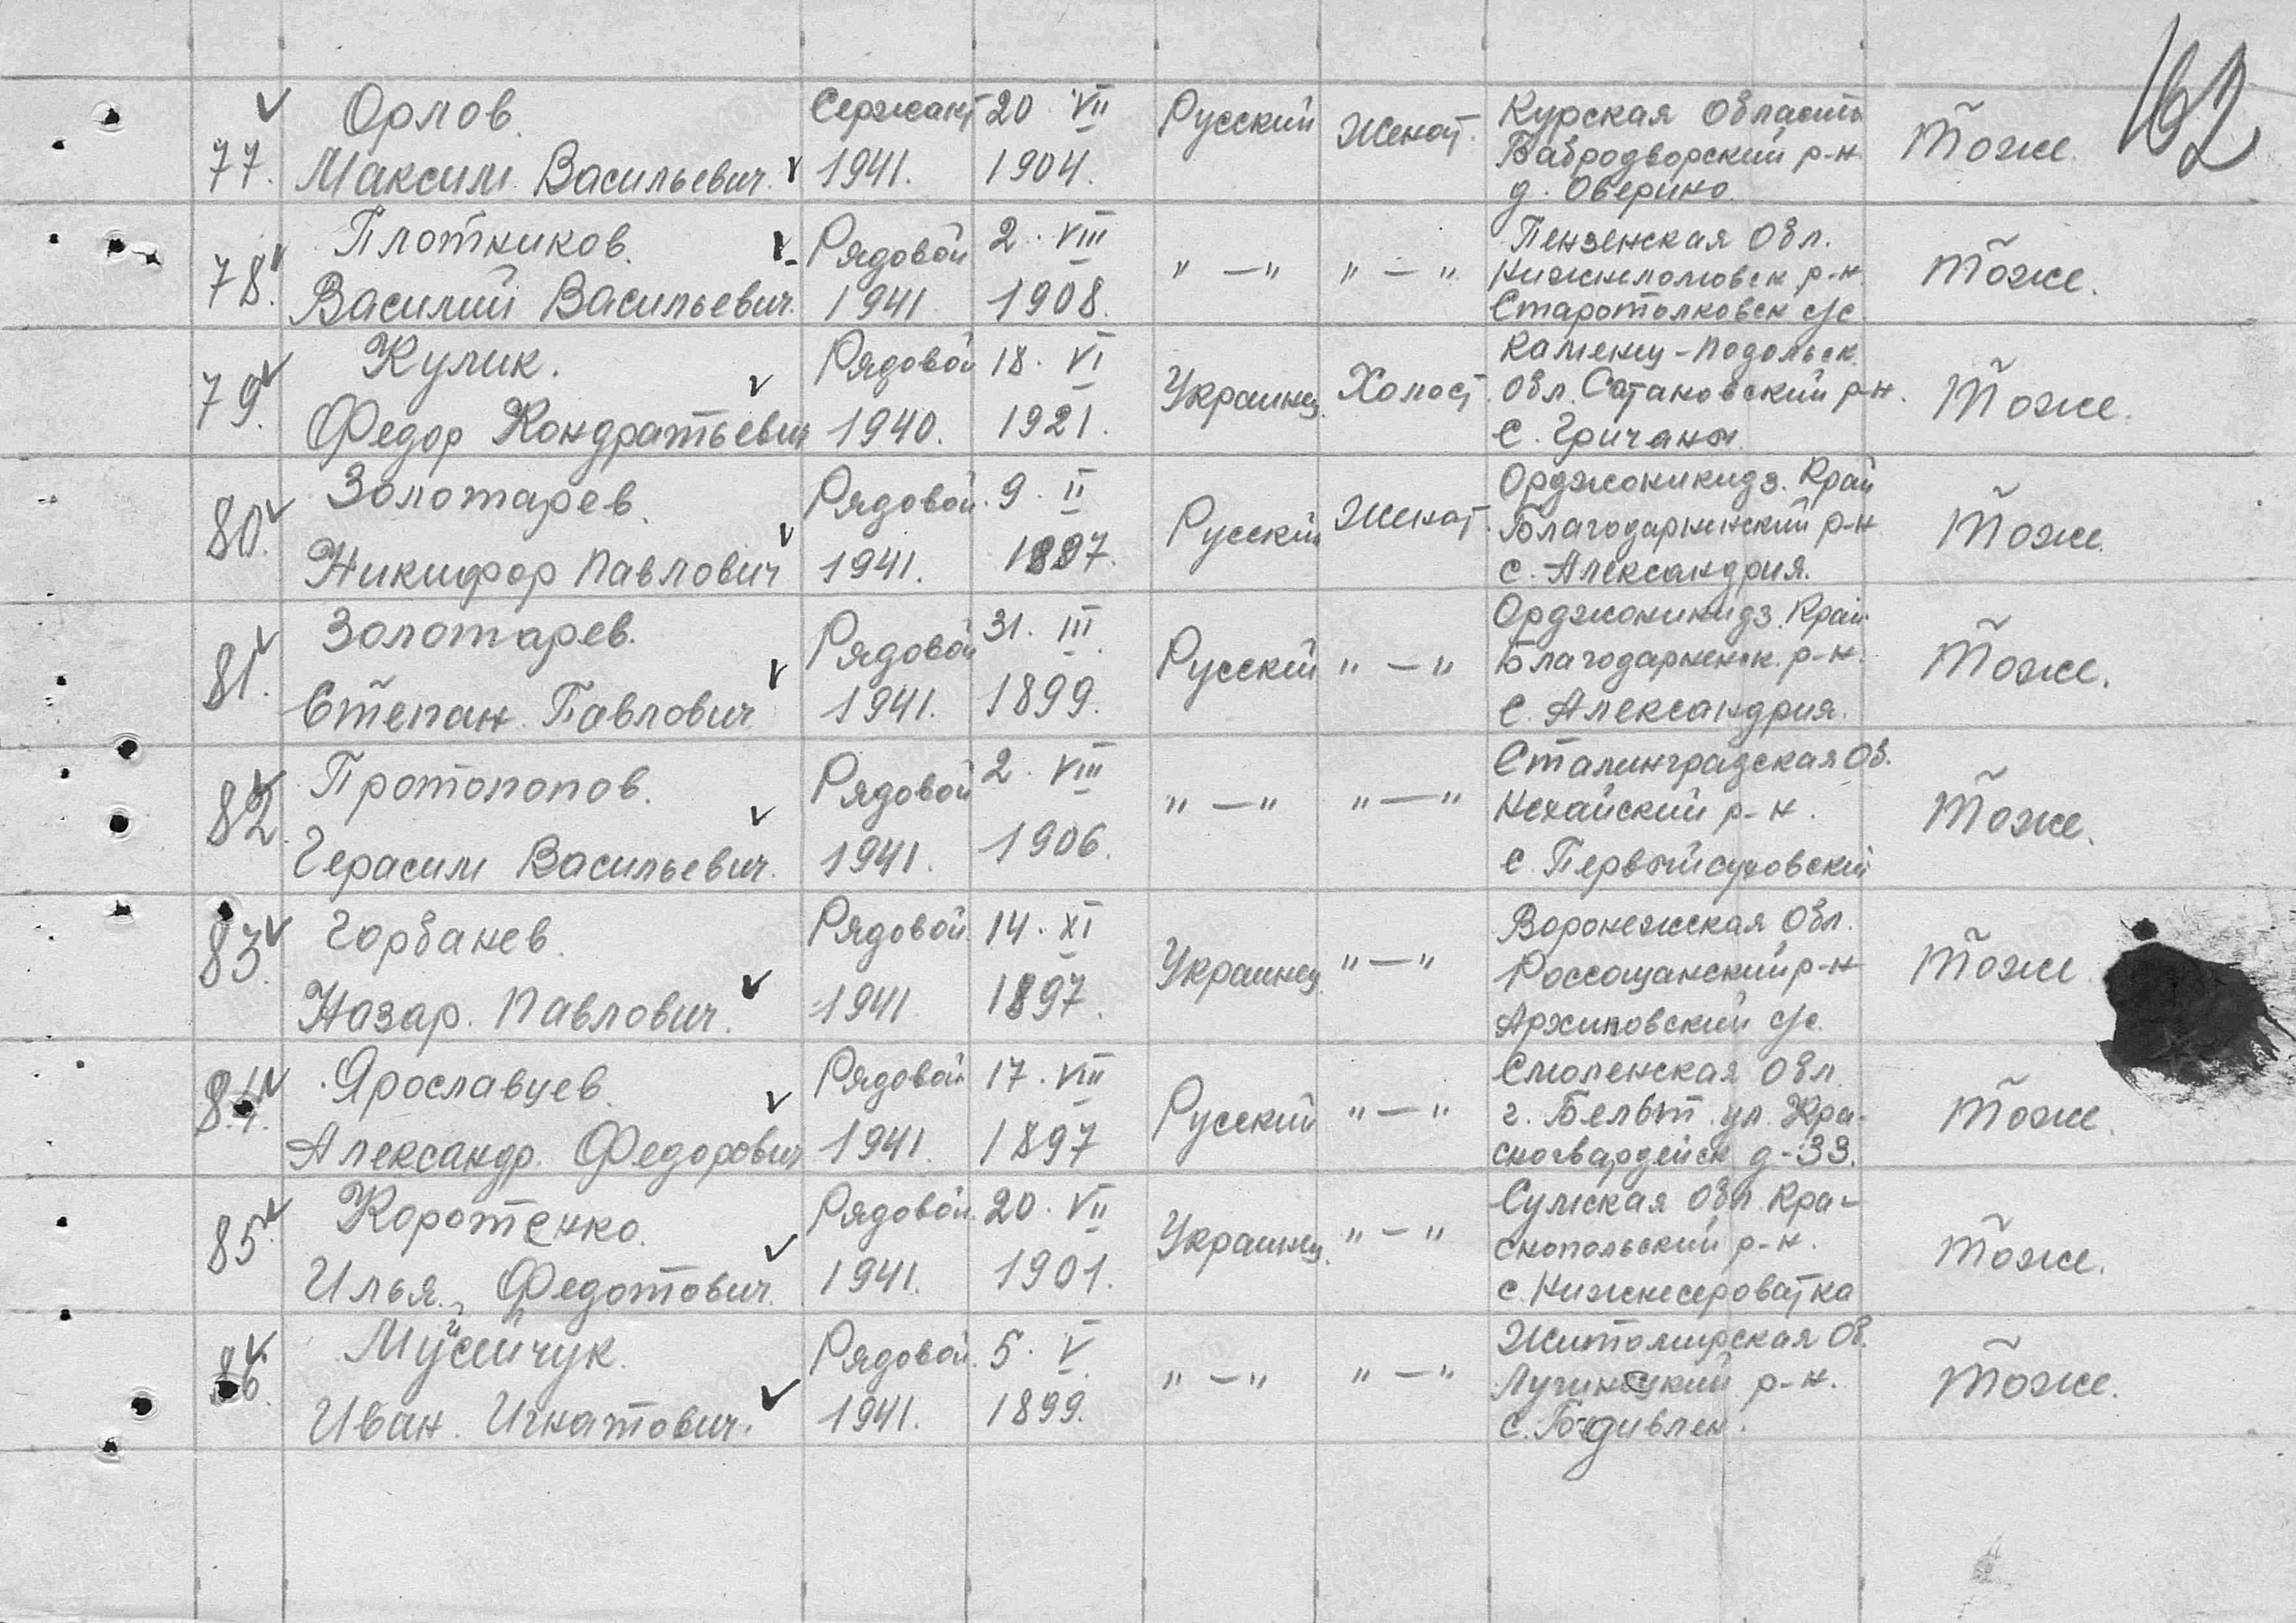 162
77. Орлов. Максим Васильевич. Сержант 1941. 20. VII 1904. Русский Женат. Курская Область Бабродворский р-н. д. Оверино. Тоже.
78. Плотников. Василий Васильевич. Рядовой 1941 2. VIII 1908. " — " " — " Пензенская Обл. Нижнеломовск р-н. Старотолковск с/с. Тоже.
79. Кулик. Федор Кондратьевич Рядовой 1940. 18. VI 1921. Украинец. Холост. Каменец-Подольск. Обл. Сатановский р-н. с. Гричаны. Тоже.
80. Золотарев. Никифор Павлович Рядовой. 1941. 9. II 1897. Русский Женат. Орджоникидз. Край Благодарненский р-н с. Александрия. Тоже.
81. Золотарев. Степан Павлович Рядовой 1941. 31. III. 1899. Русский " — " Орджоникидз. Край. Благодарненск. р-н. с. Александрия. Тоже.
82. Протопопов. Герасим Васильевич. Рядовой 1941. 2. VIII 1906. " — " " — " Сталинградская Об. Нехайский р-н. с. Тоже.
83. Горбанев. Назар. Павлович. Рядовой. 1941 14. XI 1897. Украинец. " — " Воронежская Обл. Россошанский р-н Архиповский с/с. Тоже
84. Ярославцев. Александр. Федорович Рядовой 1941. 17. VIII 1897 Русский " — " Смоленская Обл. г. ул. Кра- сногвардейск д-33. Тоже.
85. Коротенко. Илья. Федотович. Рядовой. 1941. 20. VII 1901. Украинец. " — " Сумская Обл. Кра- снопольский р-н. с. Нижнесероватка Тоже.
86. Иван. Игнатович. Рядовой. 1941. 5. V. 1899. " — " " — " Житомирская Об. р-н. с. Тоже.